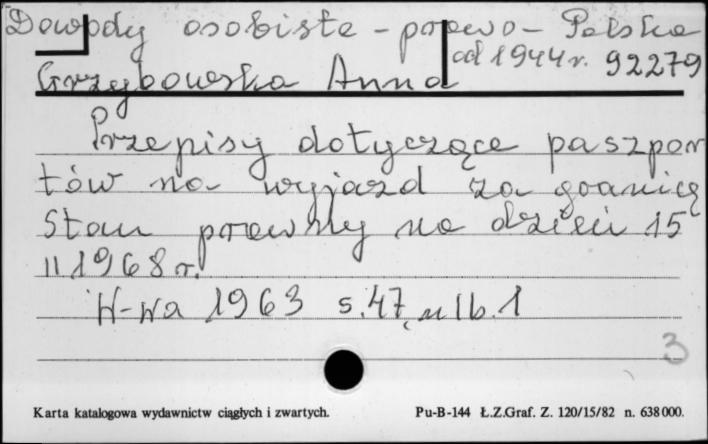 Dowody osobiste - prawo - Polska
od 1944 r. 92279
Grzybowska Anna
Przepisy dotyczące paszpor
tów na wyjazd za granicę
Stan prawny na dzień 15
II 1968 r.
W-wa 1963 s. 47, nlb. 1
3
Karta katalogowa wydawnictw ciągłych i zwartych.
Pu-B-144 Ł.Z.Graf. Z. 120/15/82 n. 638000.